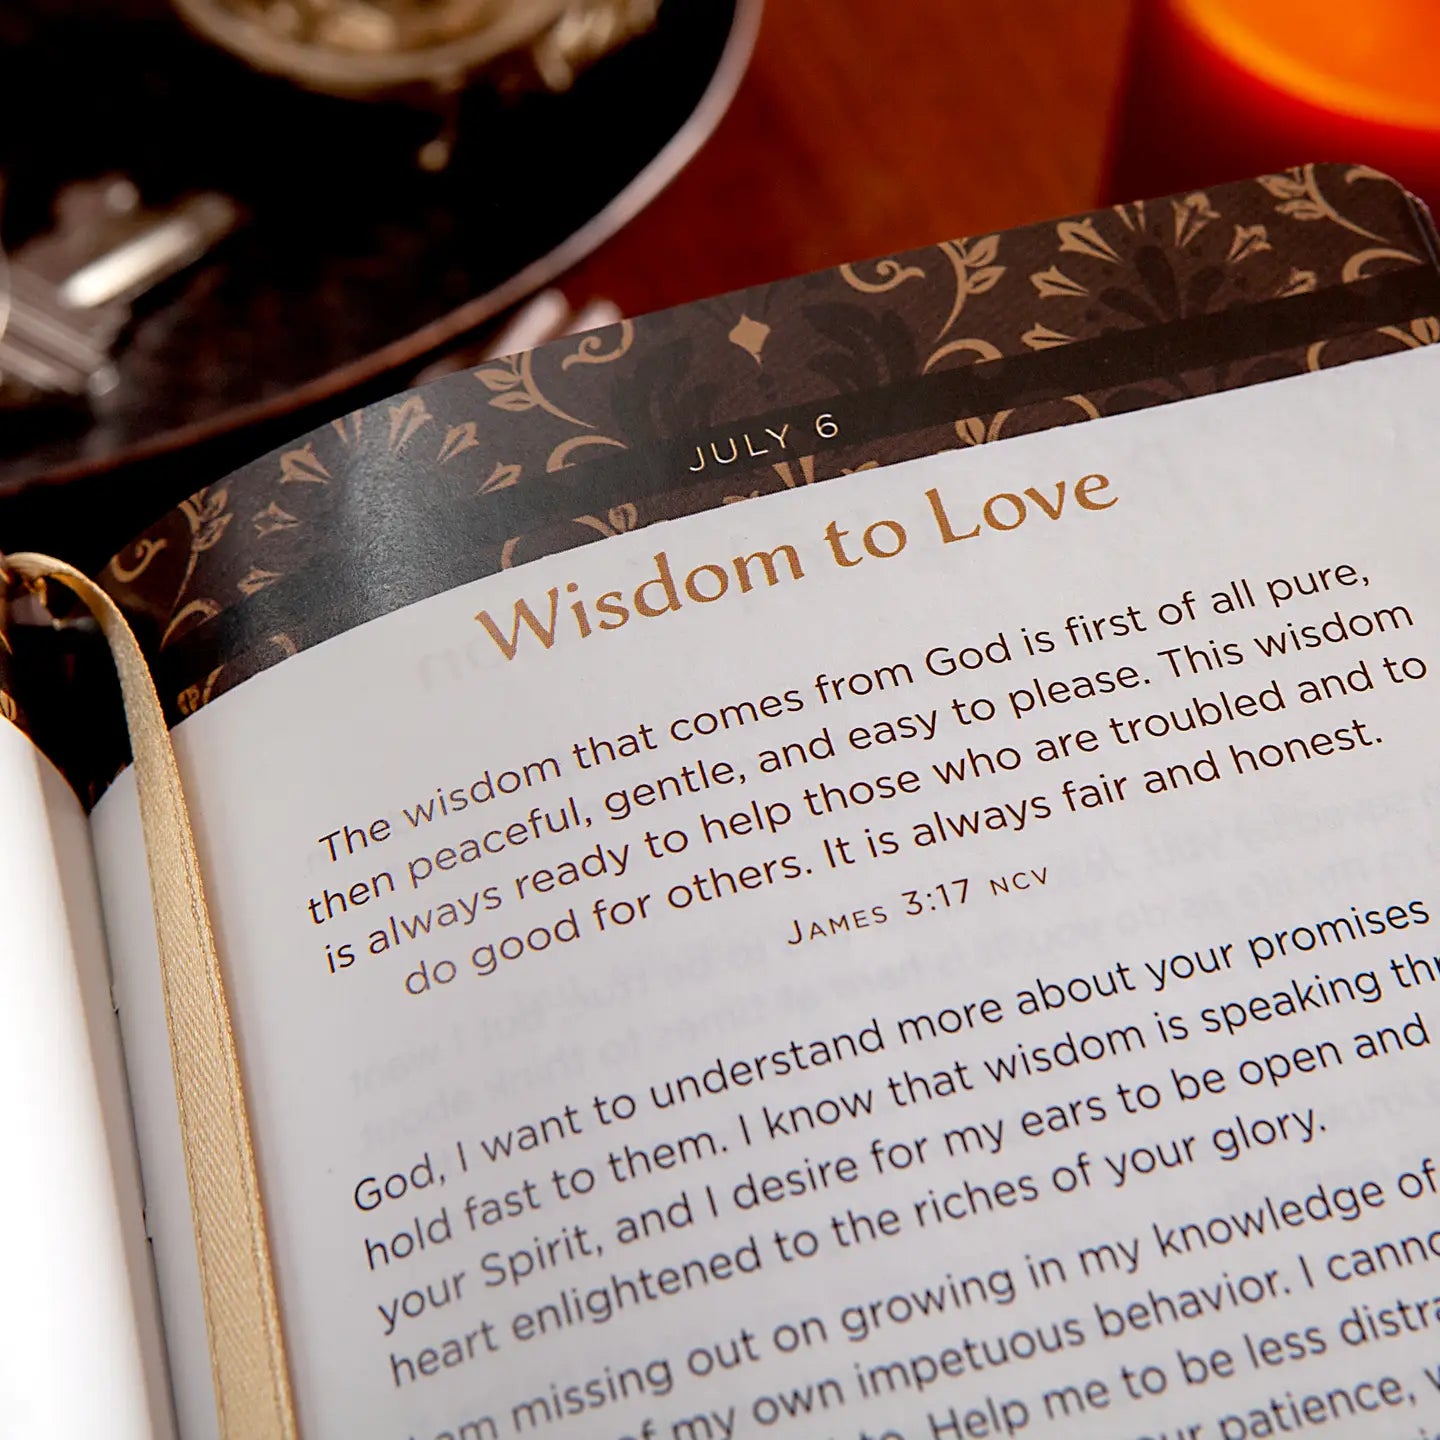 JULY 6
Wisdom to Love
The wisdom that comes from God is first of all pure,
then peaceful, gentle, and easy to please. This wisdom
is always ready to help those who are troubled and to
do good for others. It is always fair and honest.
JAMES 3:17 NCV
God, I want to understand more about your promises
hold fast to them. I know that wisdom is speaking
your Spirit, and I desire for my ears to be open and
heart enlightened to the riches of your glory.
missing out on growing in my knowledge of
of my own impetuous behavior. I
Help me to be less
patience,